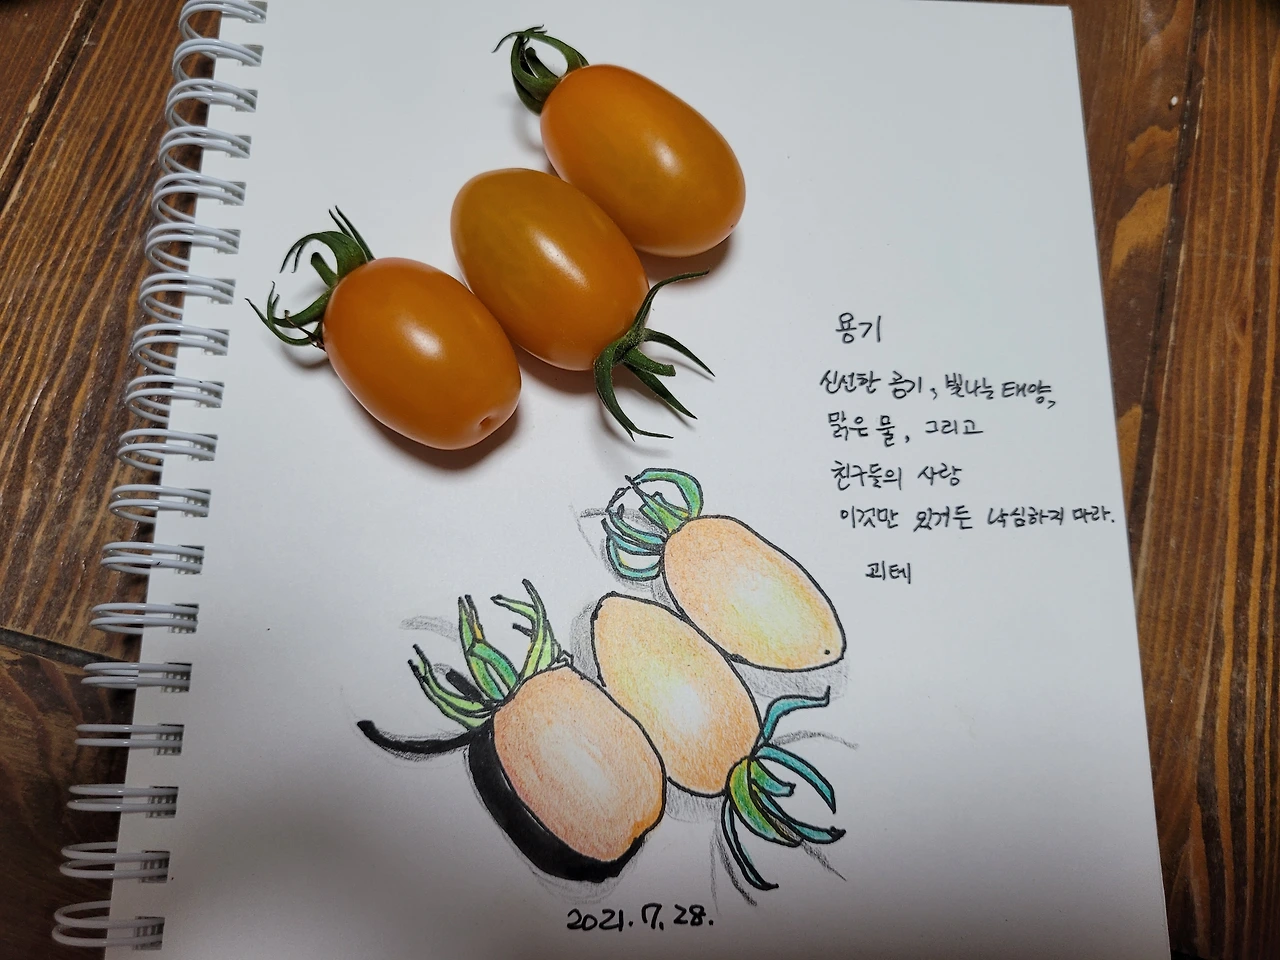 용기
신선한 공기, 빛나는 태양,
맑은 물, 그리고
친구들의 사랑
이것만 있거든 낙심하지 마라.
괴테
2021. 7. 28.